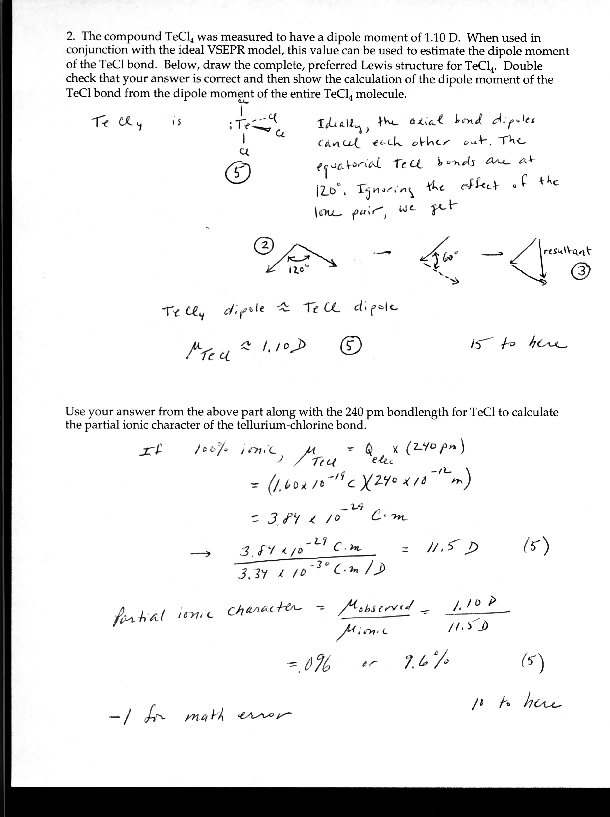 2. The compound TeCl₄ was measured to have a dipole moment of 1.10 D. When used in
conjunction with the ideal VSEPR model, this value can be used to estimate the dipole moment
of the TeCl bond. Below, draw the complete, preferred Lewis structure for TeCl₄. Double
check that your answer is correct and then show the calculation of the dipole moment of the
TeCl bond from the dipole moment of the entire TeCl₄ molecule.
TeCl₄ is
Cl
:Te Cl
Cl
Cl
⑤
Ideally, the axial bond dipoles
cancel each other out. The
equatorial TeCl bonds are at
120°. Ignoring the effect of the
lone pair, we get
② 120° → 60° → resultant ③
TeCl₄ dipole ≈ TeCl dipole
μTeCl ≈ 1.10 D ⑤ 15 to here
Use your answer from the above part along with the 240 pm bondlength for TeCl to calculate
the partial ionic character of the tellurium-chlorine bond.
If 100% ionic, μTeCl = Qelec x (240 pm)
= (1.60 x 10⁻¹⁹ C)(240 x 10⁻¹² m)
= 3.84 x 10⁻²⁹ C·m
→ 3.84 x 10⁻²⁹ C·m / 3.34 x 10⁻³⁰ C·m/D = 11.5 D (5)
Partial ionic character = μobserved / μionic = 1.10 D / 11.5 D
= .096 or 9.6% (5)
10 to here
-1 for math error